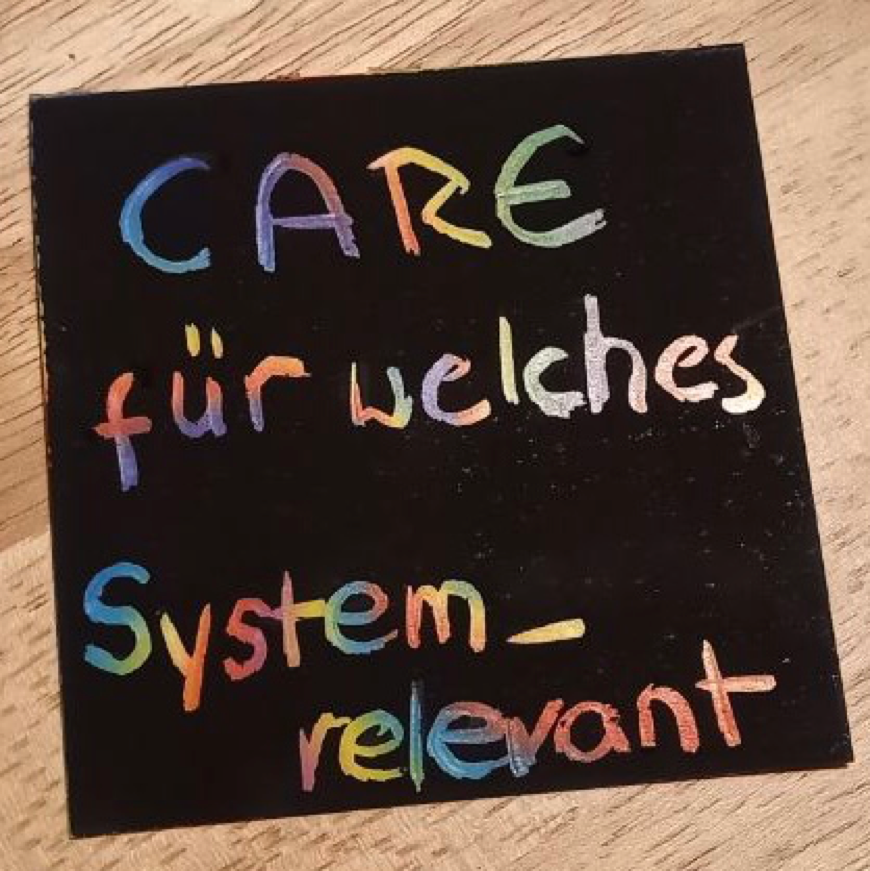 CARE
für welches
System-
relevant